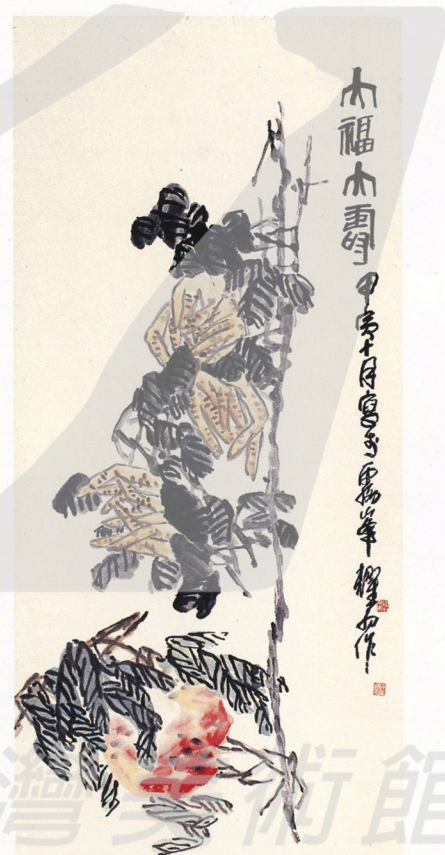 大福大壽
甲寅十月寫於霧峯 耀
作
灣美術館